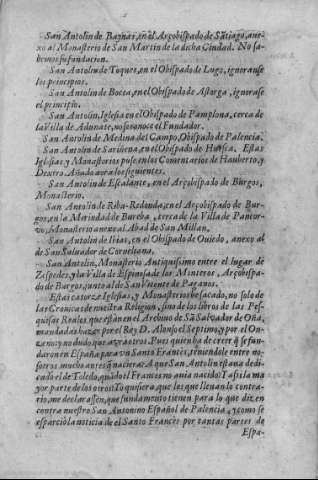 San Antolin de Baznas, en el Arçobispado de Sãtiago, ane-
xo al Monasterio de San Martin de la dicha Ciudad. No sa-
bemos su fundacion.
San Antolin de Toques, en el Obispado de Lugo, ignoranse
los principios.
San Antolin de Bocca, en el Obispado de Astorga, ignorase
el principio.
San Antolin, Iglesia en el Obispado de Pamplona, cerca de
la Villa de Adunate, no se conoce el Fundador.
San Antolin de Medina del Campo, Obispado de Palencia.
San Antolin de Sariñena, en el Obispado de Huesca. Estas
Iglesias, y Monasterios puse en los Comentarios de Hauberto, y
Dextro. Añado aora los siguientes.
San Antolin de Escalante, en el Arçobispado de Burgos,
Monasterio.
San Antolin de Riba-Redonda, en el Arçobispado de Bur-
gos, en la Merindad de Bureba, cerca de la Villa de Pancor-
vo, Monasterio anexo al Abad de San Millan.
San Antolin de Isias, en el Obispado de Oviedo, anexo al
de San Salvador de Cornellana.
San Antolin, Monasterio Antiquissimo entre el lugar de
Zespedes, y la Villa de Espinosa de los Monteros, Arçobispa-
do de Burgos, junto al de San Vicente de Paganos.
Estas catorze Iglesias, y Monasterios he sacado, no solo de
las Cronicas de nuestra Religion, sino de los libros de las Pes-
quisas Reales que estàn en el Archivo de Sã Salvador de Oña,
mandadas hazer por el Rey D. Alonso el Septimo, y por el On-
zeno; y no dudo que avra otros. Pues quien ha de creer q̃ se fun-
daron en España para vn Santo Francès, teniendole entre no-
sotros muchos antes q̃ naciera? A que San Antolin estava dedi-
cado el de Toledo, quãdo el Francès no avia nacido? Y assi la ma-
yor parte de los otros? Yo quisiera, que los que llevan lo contra-
rio, me declarassen, que fundamento tienen para lo que dizen
contra nuestro San Antonino Español de Palencia, y como se
esparciò la noticia de el Santo Francès por tantas partes de
Espa-